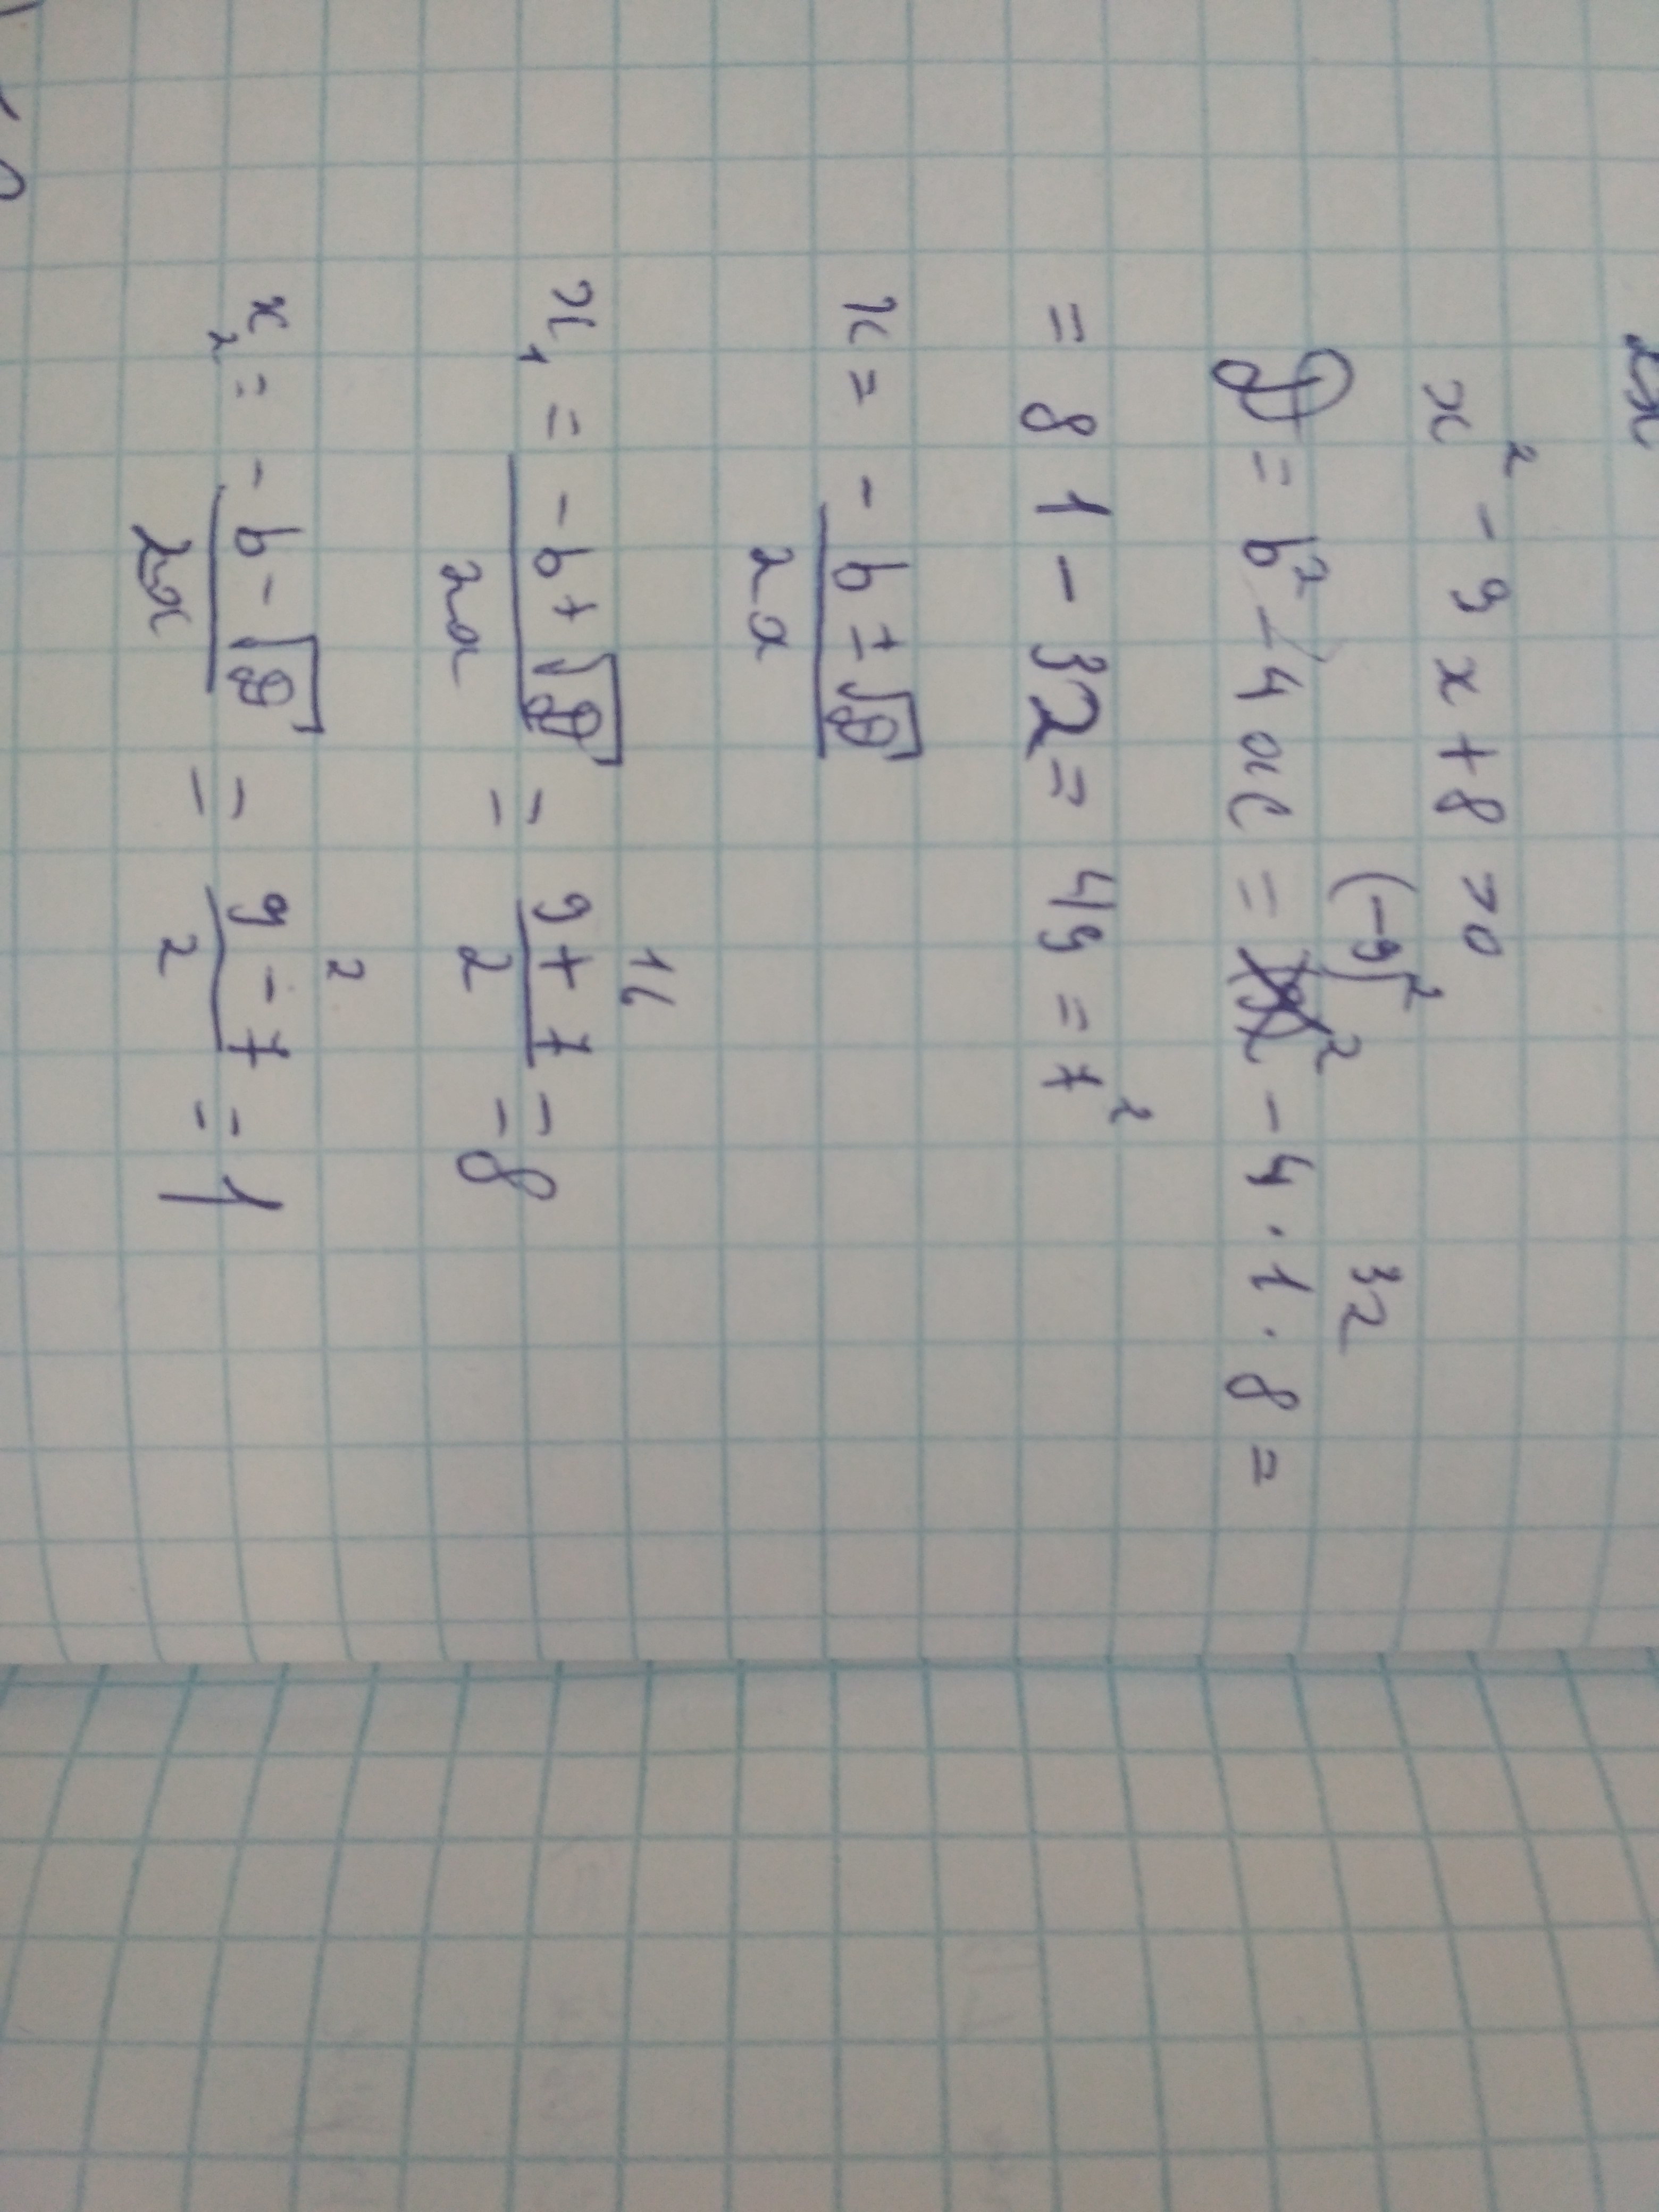 2x
x² - 9x + 8 > 0
D = b² - 4ac = (-9)² - 4 · 1 · 8 =
32
= 81 - 32 = 49 = 7²
x = -b ± √D / 2a
x₁ = -b + √D / 2a = 9 + 7 / 2 = 8
16
x₂ = -b - √D / 2a = 9 - 7 / 2 = 1
2